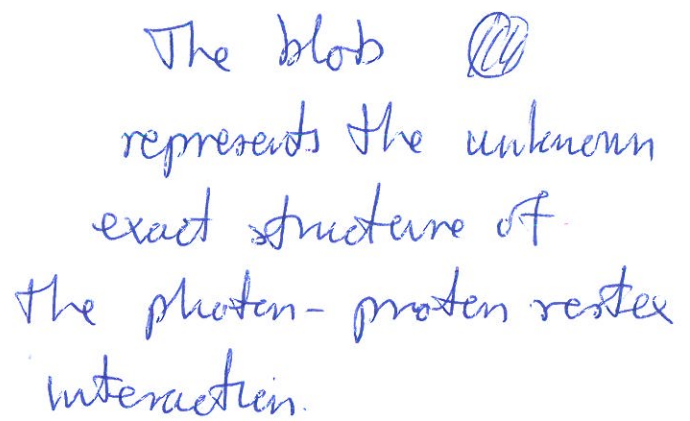 The blob
represents the unknown
exact structure of
the photon-proton vertex
interaction.